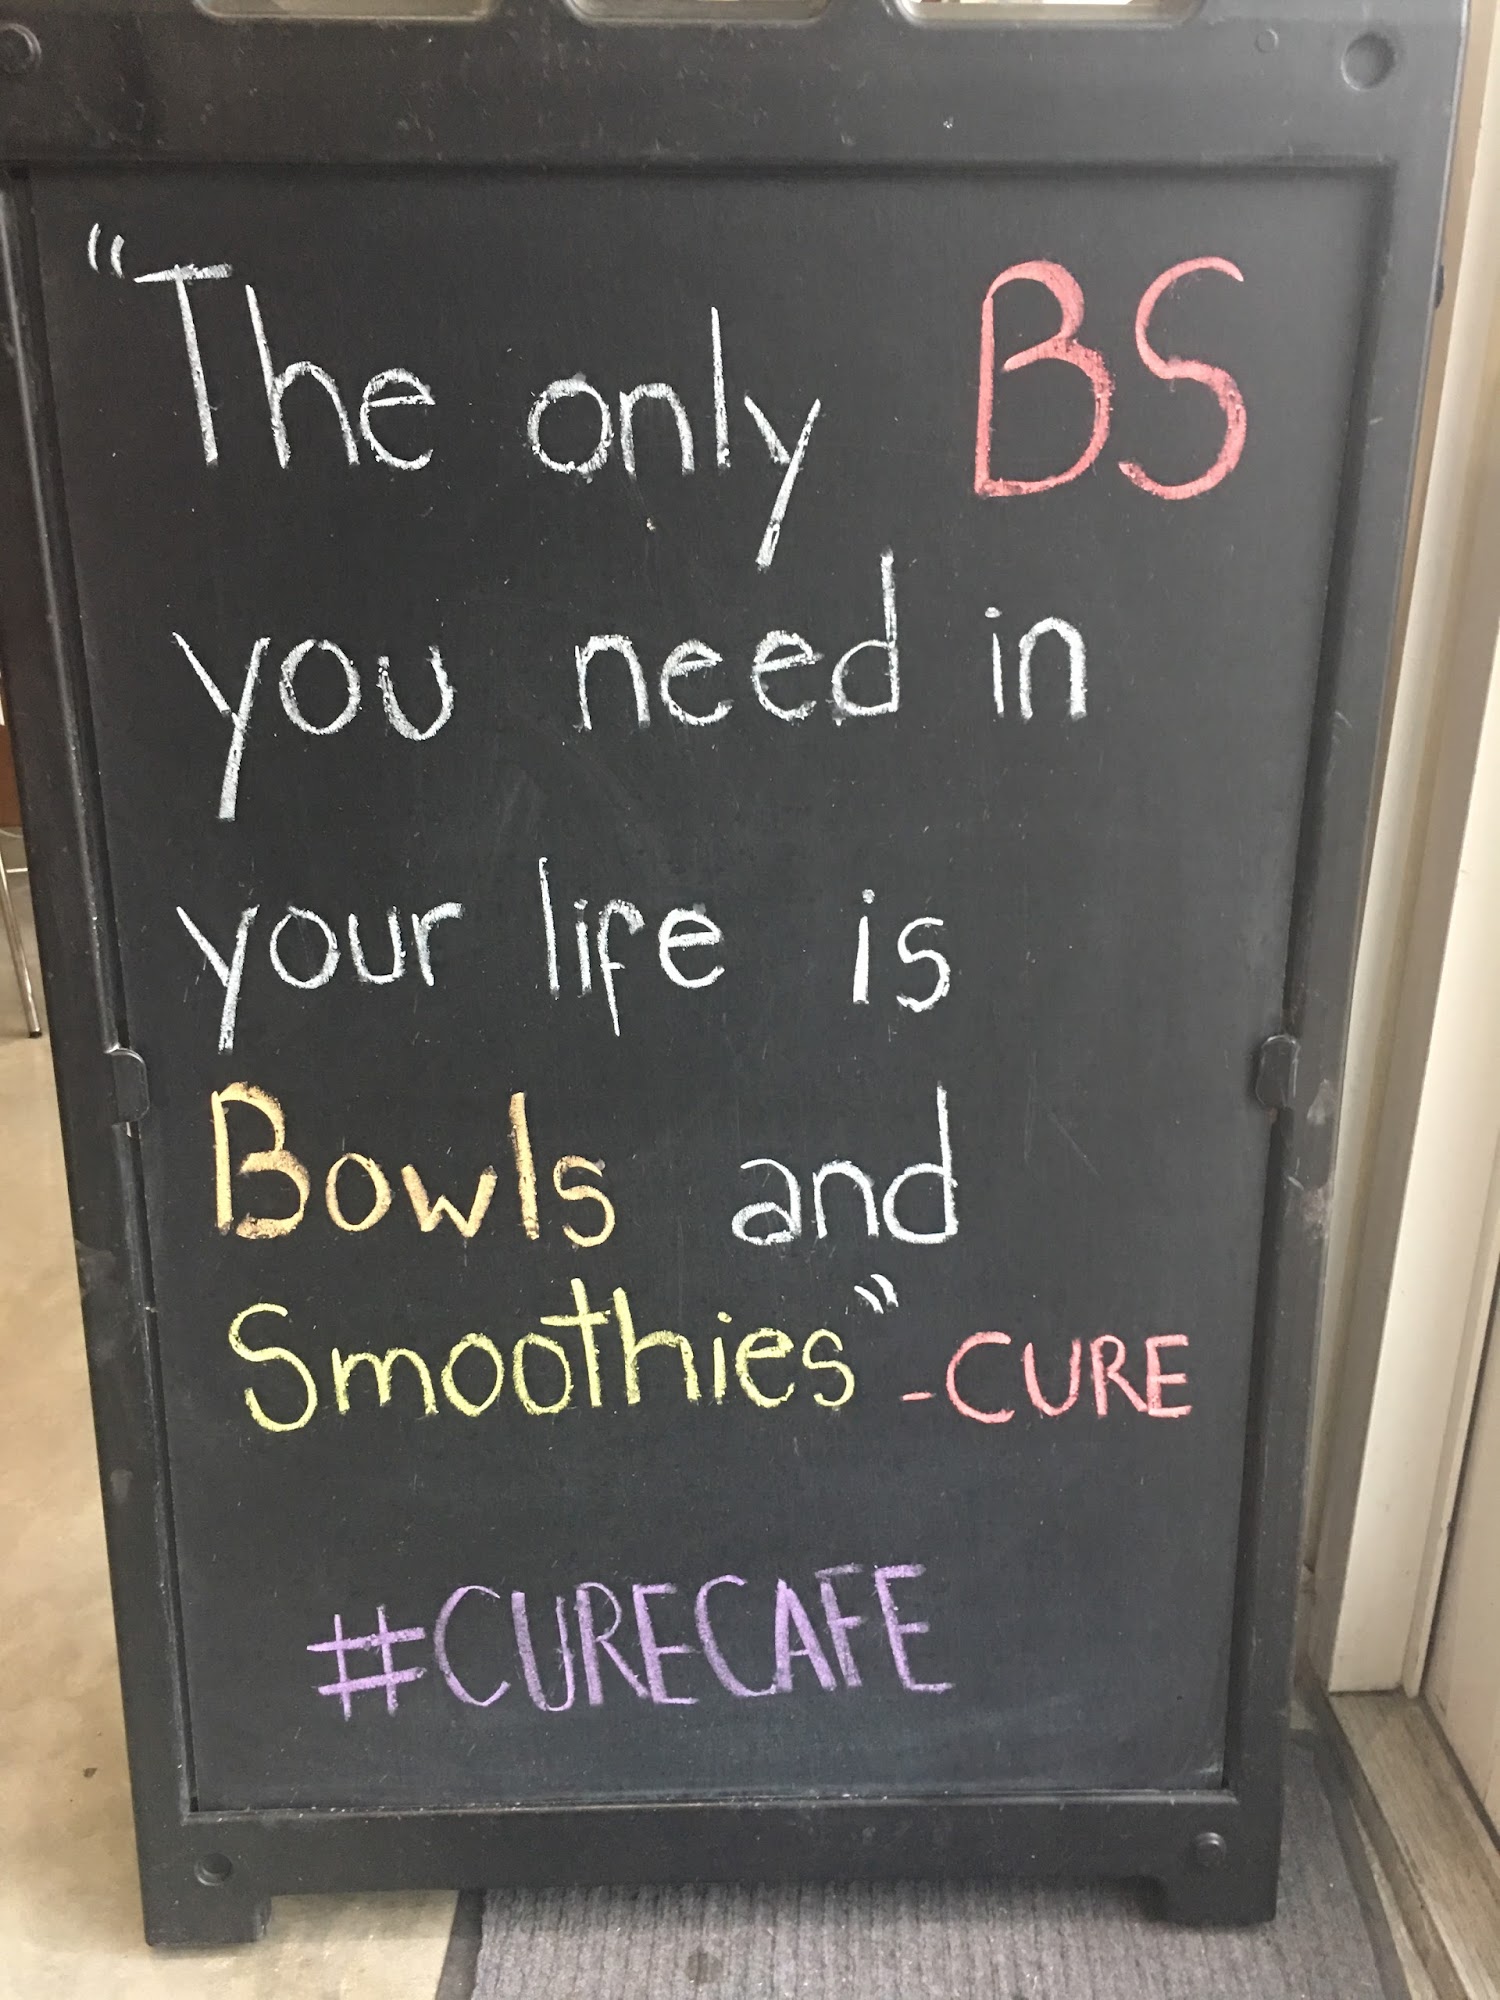 “The only BS
you need in
your life is
Bowls and
Smoothies” -CURE
#CURECAFE